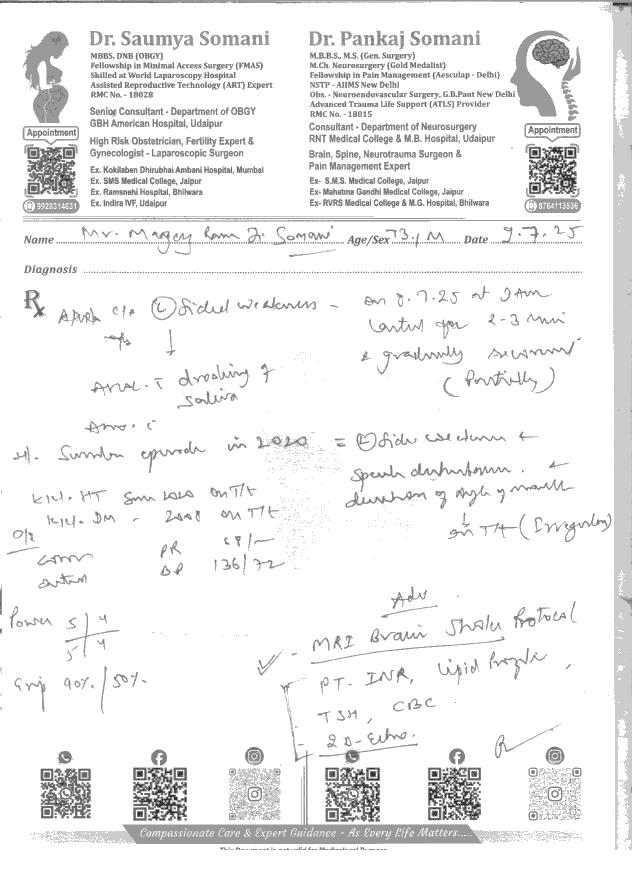 Dr. Saumya Somani
MBBS, DNB (OBGY)
Fellowship in Minimal Access Surgery (FMAS)
Skilled at World Laparoscopy Hospital
Assisted Reproductive Technology (ART) Expert
RMC No. - 18028
Senior Consultant - Department of OBGY
GBH American Hospital, Udaipur
High Risk Obstetrician, Fertility Expert &
Gynecologist - Laparoscopic Surgeon
Ex. Kokilaben Dhirubhai Ambani Hospital, Mumbai
Ex. SMS Medical College, Jaipur
Ex. Ramsnehi Hospital, Bhilwara
Ex. Indira IVF, Udaipur
Appointment
9928314631
Dr. Pankaj Somani
M.B.B.S., M.S. (Gen. Surgery)
M.Ch. Neurosurgery (Gold Medalist)
Fellowship in Pain Management (Aesculap - Delhi)
NSTP - AIIMS New Delhi
Obs. - Neuroendovascular Surgery, G.B.Pant New Delhi
Advanced Trauma Life Support (ATLS) Provider
RMC No. - 18015
Consultant - Department of Neurosurgery
RNT Medical College & M.B. Hospital, Udaipur
Brain, Spine, Neurotrauma Surgeon &
Pain Management Expert
Ex- S.M.S. Medical College, Jaipur
Ex- Mahatma Gandhi Medical College, Jaipur
Ex- RVRS Medical College & M.G. Hospital, Bhilwara
Appointment
8764113536
Name Mr. Ram Ji Somani Age/Sex 73 / M Date 9.7.25
Diagnosis
Rx c/o (L) Sided weakness - on 8.7.25 at 9 AM
lasted for 2-3 min
& gradually
(Partially)
drooling of
saliva
episode in 2020 = (L) Side weakness +
Speech +
deviation of angle of mouth
on T/t (Irregular)
K/C/o HT on T/t
K/C/o DM - 2008 on T/t
O/E
PR
BP 136/72
Power 5 | 4
5 | 4
Grip 90% / 50%
Adv
- MRI Brain Stroke Protocol
- PT-INR, Lipid Profile,
- TSH, CBC
- 2D-Echo.
Compassionate Care & Expert Guidance - As Every Life Matters.....
This Document is not valid for Medicolegal Purpose